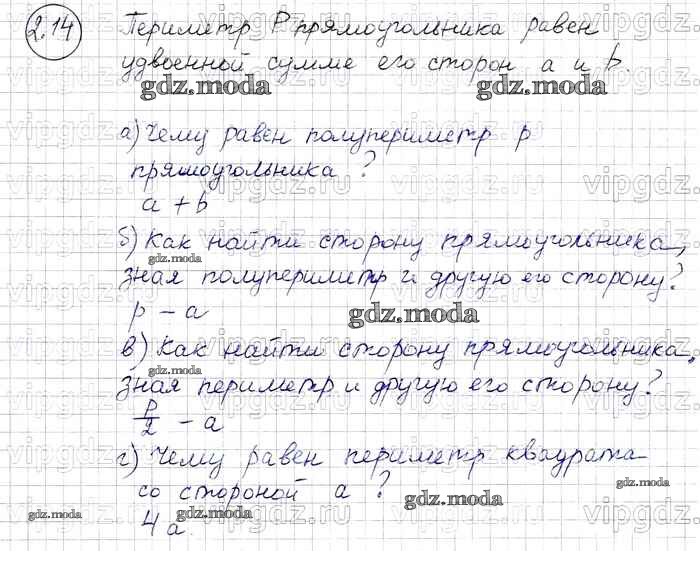 2.14 Периметр P прямоугольника равен
удвоенной сумме его сторон a и b.
gdz.moda gdz.moda
а) Чему равен полупериметр p
прямоугольника?
a + b
б) Как найти сторону прямоугольника,
gdz.moda
зная полупериметр и другую его сторону?
p - a
gdz.moda
в) Как найти сторону прямоугольника,
gdz.moda
зная периметр и другую его сторону?
P/2 - a
г) Чему равен периметр квадрата
со стороной a?
gdz.moda gdz.moda
gdz.moda gdz.moda
4a.
vipgdz.ru